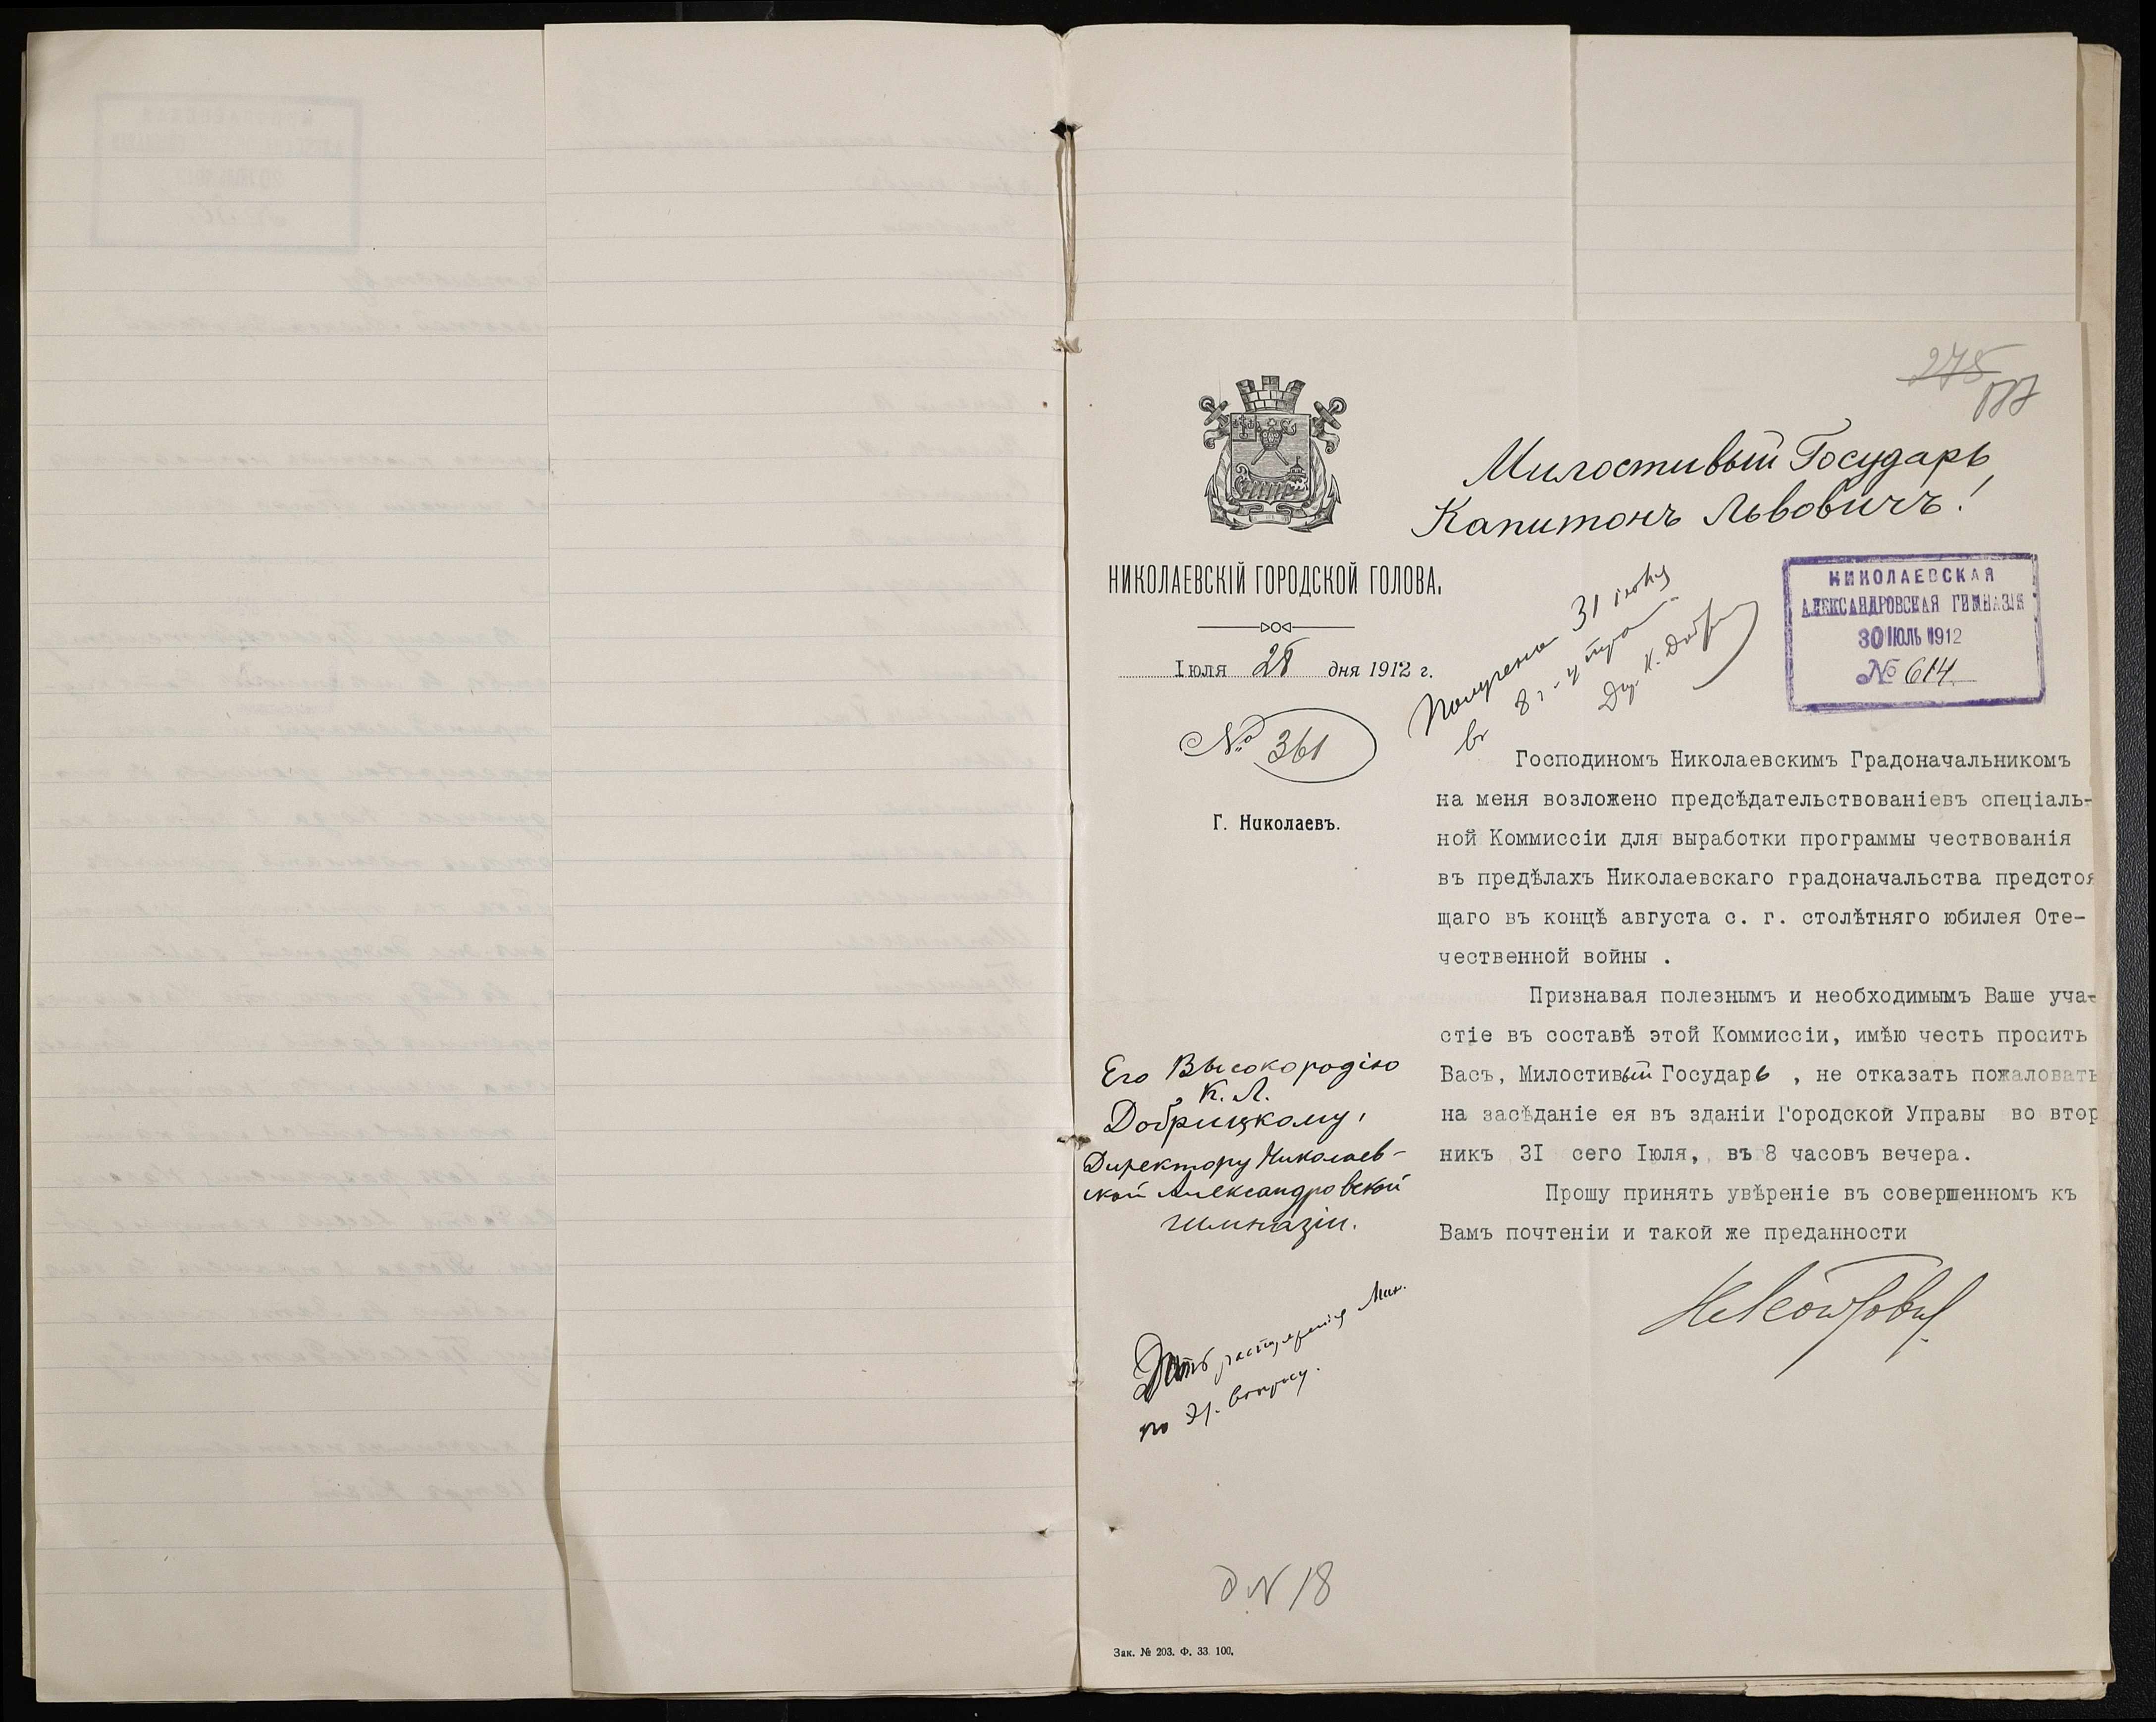 275
Милостивый Государь
Капитонъ Львовичъ!
НИКОЛАЕВСКІЙ ГОРОДСКОЙ ГОЛОВА.
Іюля 28 дня 1912 г.
№ 361
Г. Николаевъ.
Получено 31 іюля
въ 8 ч. утра
Дир. К. Добр
НИКОЛАЕВСКАЯ
АЛЕКСАНДРОВСКАЯ ГИМНАЗІЯ
30 ІЮЛЬ 1912
№ 614
Господиномъ Николаевскимъ Градоначальникомъ
на меня возложено предсѣдательствованіевъ спеціаль-
ной Коммиссіи для выработки программы чествованія
въ предѣлахъ Николаевскаго градоначальства предстоя
щаго въ концѣ августа с. г. столѣтняго юбилея Оте-
чественной войны .
Признавая полезнымъ и необходимымъ Ваше уча-
стіе въ составѣ этой Коммиссіи, имѣю честь просить
Васъ, Милостивый Государь , не отказать пожаловать
на засѣданіе ея въ зданіи Городской Управы во втор
никъ 31 сего Іюля, въ 8 часовъ вечера.
Прошу принять увѣреніе въ совершенномъ къ
Вамъ почтеніи и такой же преданности
Его Высокородію
К. Л.
Добрицкому,
Директору Николаев-
ской Александровской
гимназіи.
по вопросу.
№ 18
Зак. № 203. Ф. 33 100.